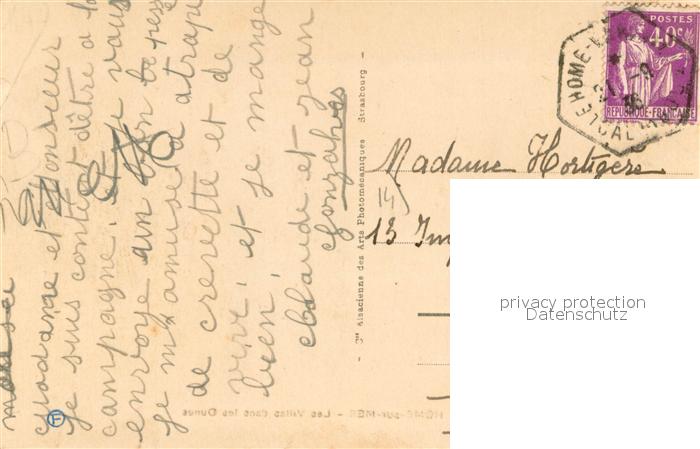 madame et Monsieur
je suis content d'être a la
campagne. Je vous
envoye un bon
je m'amuse a atrapé
de crevette et de
et je mange
bien.
claude et jean
Gonzalves
Cie Alsacienne des Arts Photomécaniques - Strasbourg
HOME-sur-MER - Les Villas dans les Dunes
POSTES
40c
REPUBLIQUE-FRANÇAISE
Madame Hortigere
14
13 Imp
privacy protection
Datenschutz